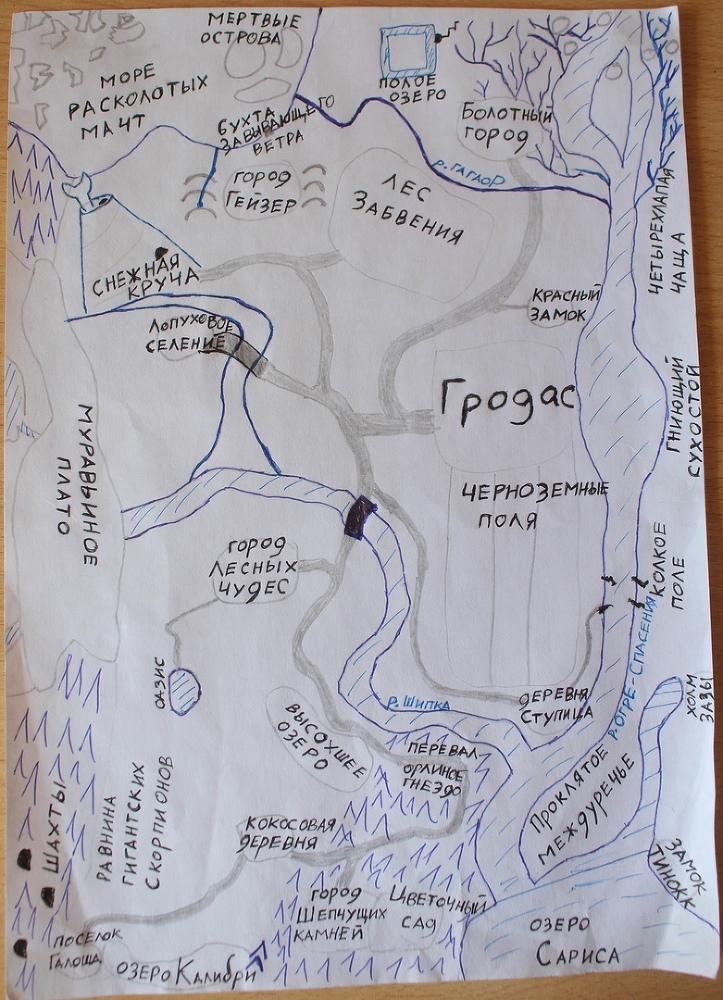 МЕРТВЫЕ
ОСТРОВА
МОРЕ
РАСКОЛОТЫХ
МАЧТ
ПОЛОЕ
ОЗЕРО
БУХТА
ЗАВЫВАЮЩЕГО
ВЕТРА
БОЛОТНЫЙ
ГОРОД
Р. ГАГЛОР
ГОРОД
ГЕЙЗЕР
ЛЕС
ЗАБВЕНИЯ
ЧЕТЫРЕХЛАПАЯ
ЧАЩА
СНЕЖНАЯ
КРУЧА
КРАСНЫЙ
ЗАМОК
ЛОПУХОВОЕ
СЕЛЕНИЕ
ГРОДАС
ГНИЮЩИЙ
СУХОСТОЙ
МУРАВЬИНОЕ
ПЛАТО
ЧЕРНОЗЕМНЫЕ
ПОЛЯ
ГОРОД
ЛЕСНЫХ
ЧУДЕС
КОЛКОЕ
ПОЛЕ
Р. ОТРЕ-СПАСЕНИЯ
ОАЗИС
Р. ШИПКА
ДЕРЕВНЯ
СТУПИЦА
ХОЛМ
ЗАЗЫ
ВЫСОХШЕЕ
ОЗЕРО
ПЕРЕВАЛ
ОРЛИНОЕ
ГНЕЗДО
ПРОКЛЯТОЕ
МЕЖДУРЕЧЬЕ
ШАХТЫ
РАВНИНА
ГИГАНТСКИХ
СКОРПИОНОВ
КОКОСОВАЯ
ДЕРЕВНЯ
ЗАМОК
ТИНОКК
ГОРОД
ШЕПЧУЩИХ
КАМНЕЙ
ЦВЕТОЧНЫЙ
САД
ПОСЕЛОК
ГАЛОША
ОЗЕРО КАЛИБРИ
ОЗЕРО
САРИСА